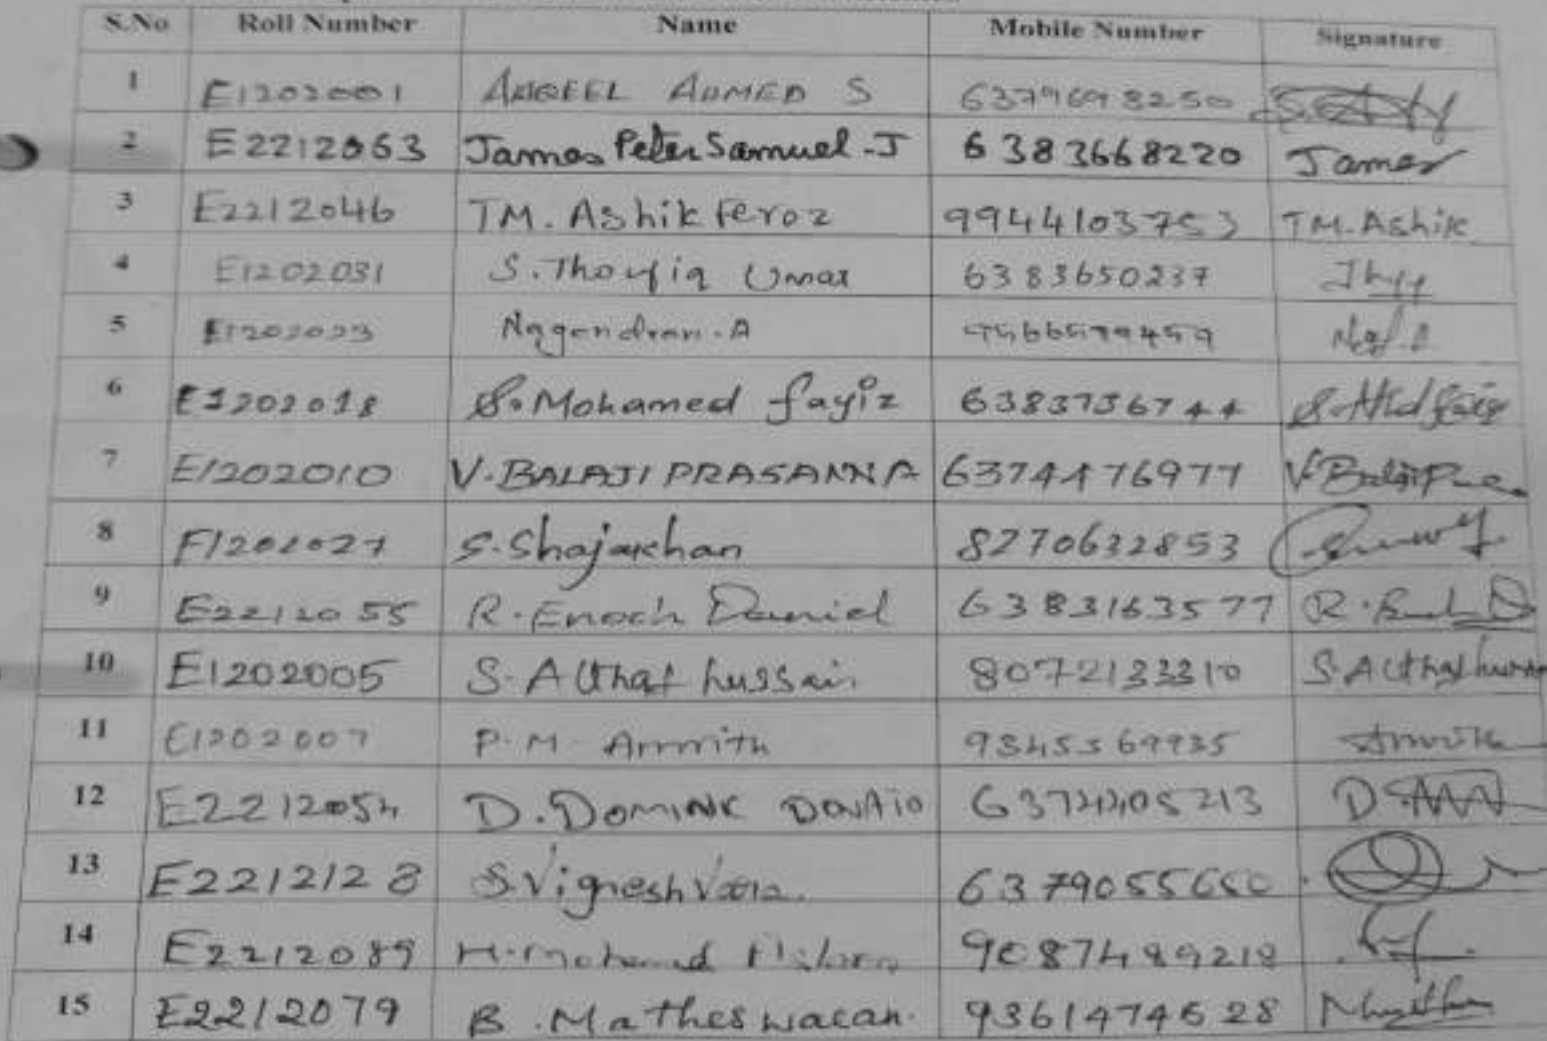 S.No Roll Number Name Mobile Number Signature
1 E1202001 AQEEL AHMED S 6379698250
2 E2212063 James Peter Samuel.J 6383668220 James
3 E2212046 TM. Ashik Feroz 9944103753 TM.Ashik
4 E1202031 S.Thoufiq Umar 6383650237
5 E1202023 Nagendran.A 9566579459
6 E1202018 S.Mohamed fayiz 6383736744
7 E1202010 V.BALAJI PRASANNA 6374476977
8 E1202027 S.Shajakhan 8270632853
9 E2212055 R.Enoch Daniel 6383163577
10 E1202005 S.Althaf hussain 8072133310
11 E1202007 P.M. Amrith 9345369935
12 E2212054 D.DOMINIC
13 E2212128 S.Vignesh 6379055650
14 E2212089 H.Mohamed 9087489218
15 E2212079 B.Matheswaran. 9361474628